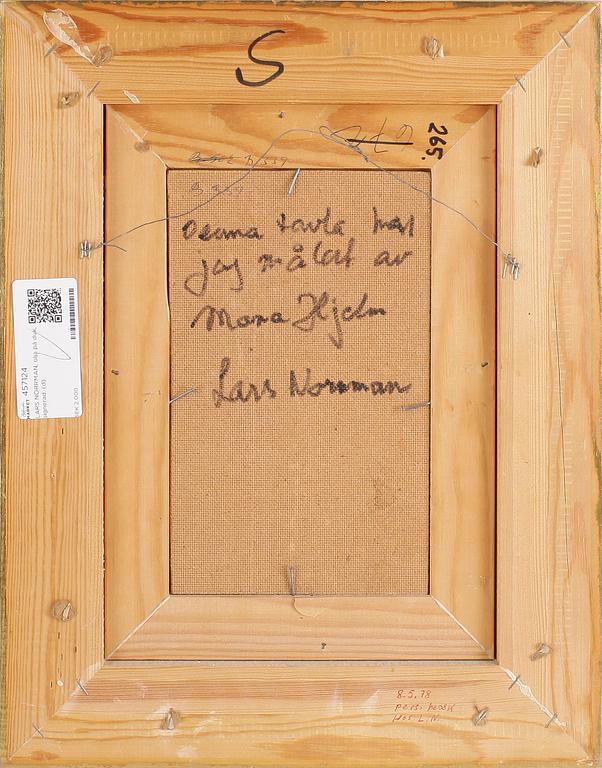 S
265.
B 359
Denna tavla har
jag målat av
Mona Hjelm
Lars Norrman
457124
LARS NORRMAN, olja på duk,
signerad. (d)
SEK 2 000
8-5.78
pers. besök
Hos L.N.